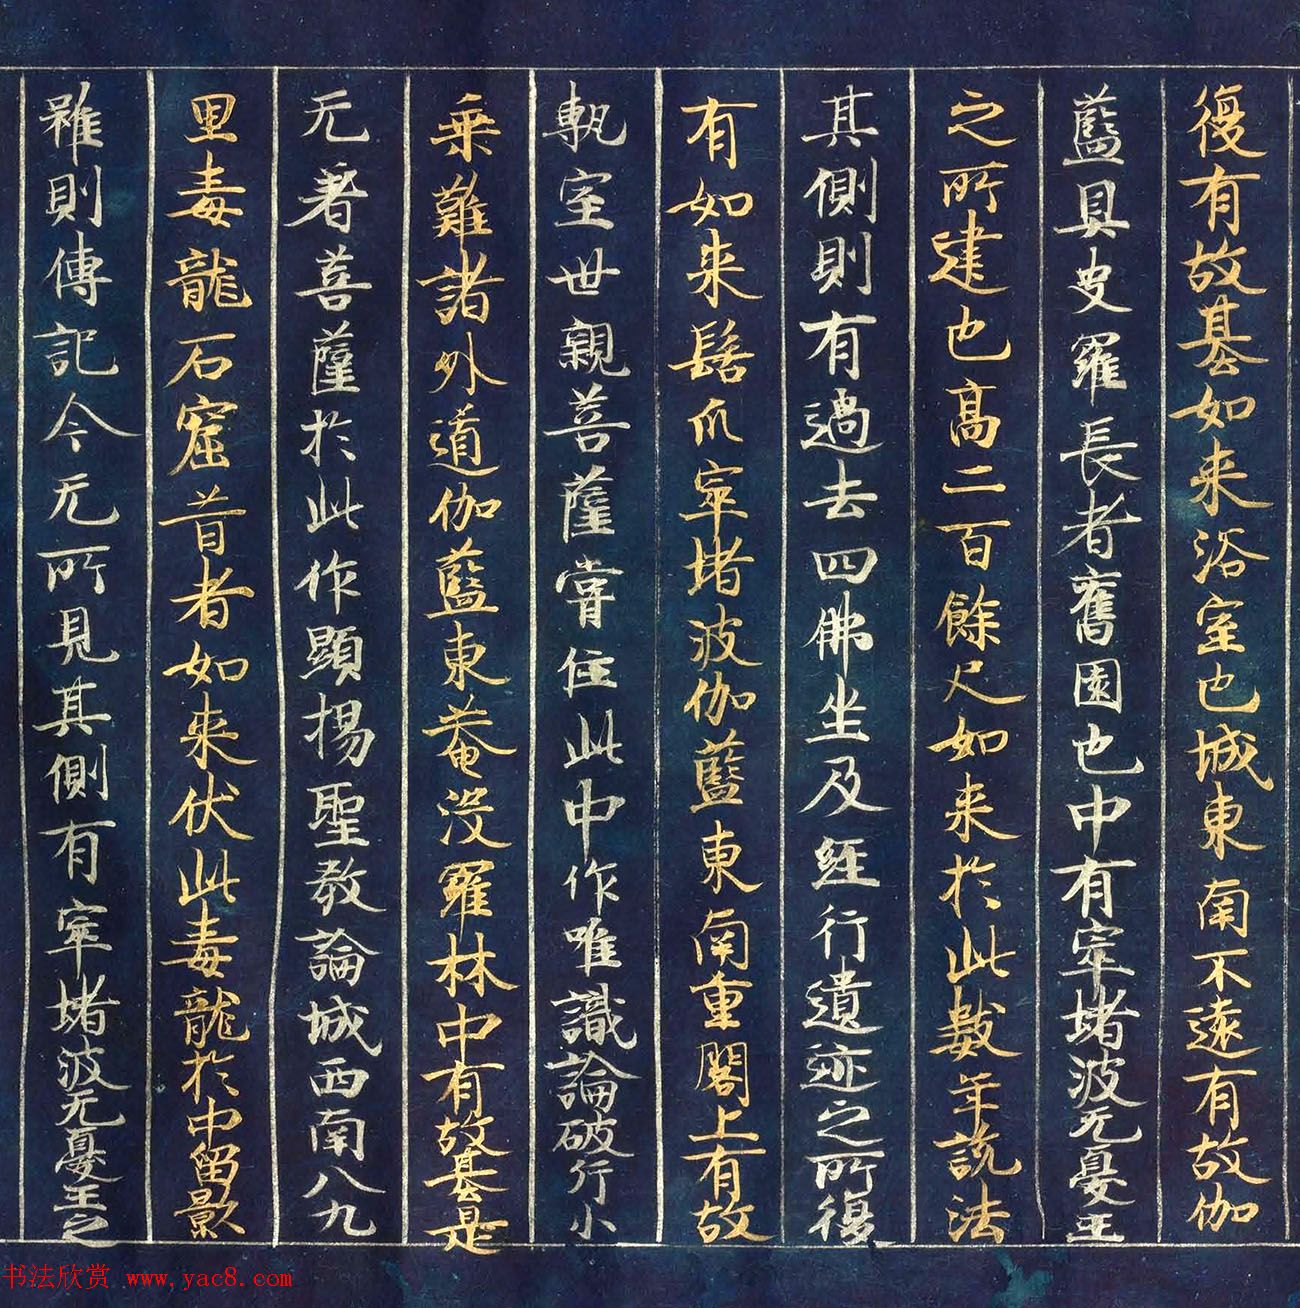 復有故基如来浴室也城東南不遠有故伽
藍具史羅長者舊園也中有窣堵波无憂王
之所建也高二百餘尺如来於此數年說法
其側則有過去四佛坐及経行遺迹之所復
有如来髮爪窣堵波伽藍東南重閣上有故
塼室世親菩薩甞住此中作唯識論破斥小
乗難諸外道伽藍東菴没羅林中有故基是
无著菩薩於此作顯揚聖教論城西南八九
里毒龍石窟昔者如来伏此毒龍於中留影
雖則傳記今无所見其側有窣堵波无憂王之
书法欣赏 www.yac8.com